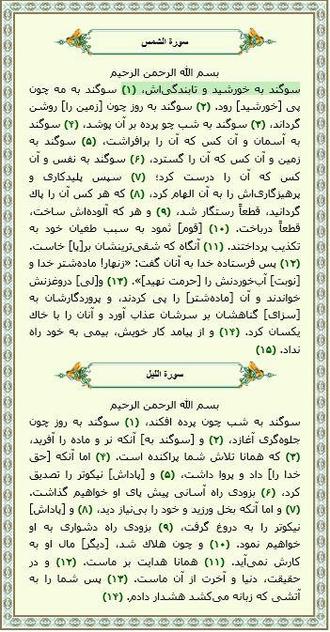 سورة الشمس
بسم الله الرحمن الرحيم
سوگند به خورشيد و تابندگی‌اش، (۱) سوگند به مه چون
پی [خورشيد] رود. (۲) سوگند به روز چون [زمين را] روشن
گرداند، (۳) سوگند به شب چو پرده بر آن پوشد، (۴) سوگند
به آسمان و آن کس که آن را برافراشت، (۵) سوگند به
زمين و آن کس که آن را گسترد، (۶) سوگند به نفس و آن
کس که آن را درست کرد؛ (۷) سپس پليدکاری و
پرهيزگاری‌اش را به آن الهام کرد، (۸) که هر کس آن را پاک
گردانيد، قطعاً رستگار شد، (۹) و هر که آلوده‌اش ساخت،
قطعاً درباخت. (۱۰) [قوم] ثمود به سبب طغيان خود به
تکذيب پرداختند. (۱۱) آنگاه که شقی‌ترينشان بر[پا] خاست.
(۱۲) پس فرستاده خدا به آنان گفت: «زنهار! ماده‌شتر خدا و
[نوبت] آب‌خوردنش را [حرمت نهيد]». (۱۳) و[لی] دروغزنش
خواندند و آن [ماده‌شتر] را پی کردند، و پروردگارشان به
[سزای] گناهشان بر سرشان عذاب آورد و آنان را با خاک
يکسان کرد. (۱۴) و از پيامد کار خويش، بيمی به خود راه
نداد. (۱۵)
سورة الليل
بسم الله الرحمن الرحيم
سوگند به شب چون پرده افکند، (۱) سوگند به روز چون
جلوه‌گری آغازد، (۲) و [سوگند به] آنکه نر و ماده را آفريد،
(۳) که همانا تلاش شما پراکنده است. (۴) اما آنکه [حق
خدا را] داد و پروا داشت، (۵) و [پاداش] نيکوتر را تصديق
کرد، (۶) بزودی راه آسانی پيش پای او خواهيم گذاشت.
(۷) و اما آنکه بخل ورزيد و خود را بی‌نياز ديد، (۸) و [پاداش]
نيکوتر را به دروغ گرفت، (۹) بزودی راه دشواری به او
خواهيم نمود. (۱۰) و چون هلاک شد، [ديگر] مال او به
کارش نمی‌آيد. (۱۱) همانا هدايت بر ماست. (۱۲) و در
حقيقت، دنيا و آخرت از آن ماست. (۱۳) پس شما را به
آتشی که زبانه می‌کشد هشدار دادم. (۱۴)